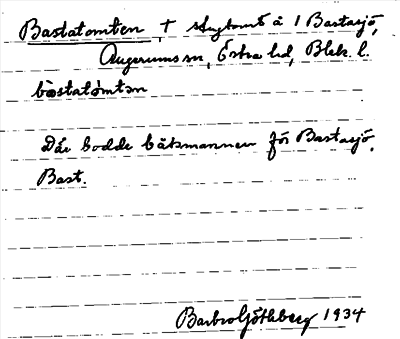 Bastatomten † stugtomt å 1 Bastasjö,
Augerums sn, Östra hd, Blek. l.
bàstatòmtən
Där bodde båtsmannen för Bastasjö.
Bast.
Barbro Göthberg 1934